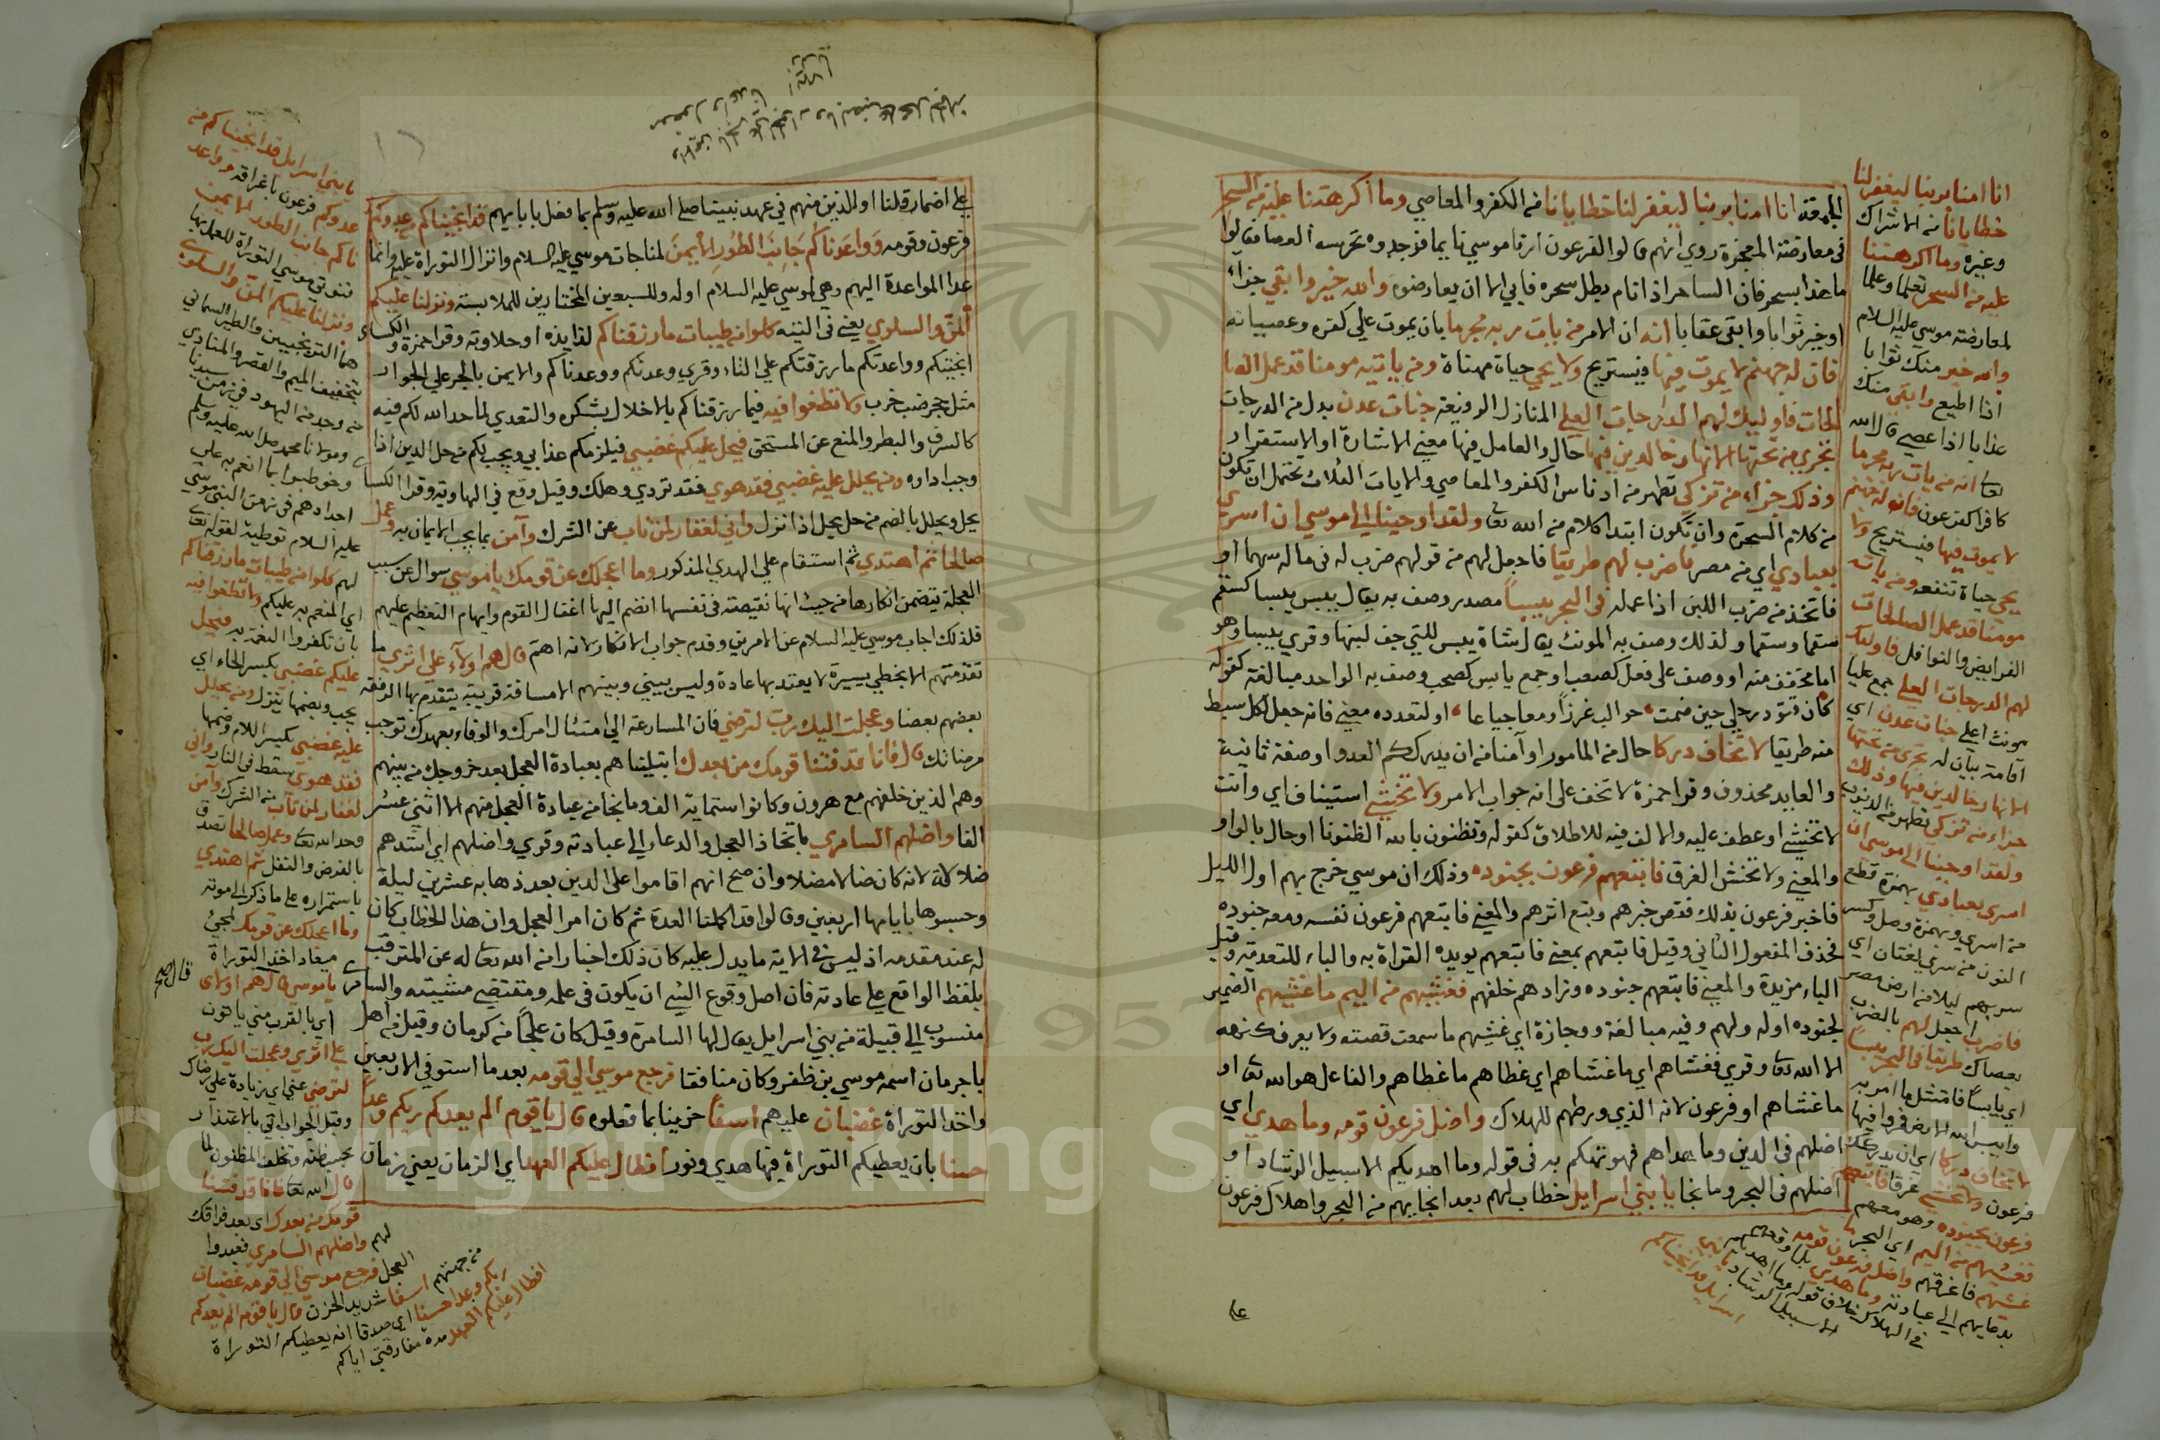 الجمعة انا امنا بربنا ليغفر لنا خطايانا من الكفر والمعاصي وما اكرهتنا عليه من السحر
في معارضة المعجزة روي انهم قالوا لفرعون ارنا موسى نايما فوجدوه تحرسه العصا فقالوا
ما هذا بسحر فان الساحر اذا نام بطل سحره فابي الا ان يعارضوه والله خير وابقي جزاء
او خير ثوابا وابقي عقابا انه ان الامر من يات ربه مجرما بان يموت علي كفره وعصيانه
فان له جهنم لا يموت فيها فيستريح ولا يحي حياة مهناة ومن ياتيه مومنا قد عمل الصا
لحات فاوليك لهم الدرجات العلي المنازل الرفيعة جنات عدن بدل من الدرجات
تجري من تحتها الانهار خالدين فيها حال والعامل فيها معني الاشارة او الاستقرار
وذلك جزاء من تزكي تطهر من ادناس الكفر والمعاصي والايات الثلاث تحتمل ان تكون
من كلام السحرة وان تكون ابتدا كلام من الله تعالى ولقد اوحينا الي موسي ان اسري
بعبادي اي من مصر فاضرب لهم طريقا فاجعل لهم من قولهم ضرب له في ماله سهما او
فاتخذ من ضرب اللبن اذا عمله في البحر يبسا مصدر وصف به يقال يبس يبسا كسقم
سقما وسقما ولذلك وصف به المونث يقال شاة يبس للتي جف لبنها وقري يبسا وهو
اما مخفف منه او وصف علي فعل كصعب او جمع يابس كصحب وصف به الواحد مبالغة كقوله
كان قتود رحلي حين ضمت حوالب غرزا ومعا جياعا او لتعدده معني فانه جعل لكل سبط
منه طريقا لا تخاف دركا حال من المامور اي آمنا من ان يدرككم العدو او صفة ثانية
والعايد محذوف وقرا حمزة لا تخف علي انه جواب الامر ولا تخشي استيناف اي وانت
لا تخشي او عطف عليه والالف فيه للاطلاق كقوله وتظنون بالله الظنونا او حال بالواو
والمعني ولا تخش الغرق فاتبعهم فرعون بجنوده وذلك ان موسي خرج بهم اول الليل
فاخبر فرعون بذلك فقص خبرهم وتبع اثرهم والمعني فاتبعهم فرعون نفسه ومعه جنوده
فحذف المفعول الثاني وقيل فاتبعهم بمعني فاتبعهم يويده القراة به والباء للتعدية وقيل
الباء مزيدة والمعني فاتبعهم جنوده وذادهم خلفهم فغشيهم من اليم ما غشيهم الضمير
لجنوده او له ولهم وفيه مبالغة ووجازة اي غشيهم ما سمعت قصته ولا يعرف كنهه
الا الله تعالى وقري فغشاهم اي ما غشاهم اي غطاهم ما غطاهم والفاعل هو الله تعالى او
ما غشاهم او فرعون لانه الذي ورطهم للهلاك واضل فرعون قومه وما هدي اي
اضلهم في الدين وما هداهم فهو تهكم به في قوله وما اهديكم الا سبيل الرشاد او
اضلهم في البحر وما نجا يا بني اسرايل خطاب لهم بعد انجايهم من البحر واهلاك فرعون
انا امنا بربنا ليغفر لنا
خطايانا من الاشراك
وغيره وما اكرهتنا
عليه من السحر تعلما وعملا
لمعارضة موسي عليه السلام
والله خير منك ثوابا
اذا اطيع وابقي منك
عذابا اذا عصي قال الله
تعالى انه من يات ربه مجرما
كافرا كفرعون فان له جهنم
لا يموت فيها فيستريح ولا
يحي حياة تنفعه ومن ياته
مومنا قد عمل الصالحات
الفرايض والنوافل فاوليك
لهم الدرجات العلي جمع عليا
مونث اعلي جنات عدن اي
اقامة بيان له تجري من تحتها
الانهار خالدين فيها وذلك
جزاء من تزكي تطهر من الذنوب
ولقد اوحينا الي موسي ان
اسري بعبادي بهمزة قطع
من اسري وبهمزة وصل وكسر
النون من سري لغتان اي
سر بهم ليلا من ارض مصر
فاضرب اجعل لهم بالضرب
بعصاك طريقا في البحر يبسا
اي يابسا فامتثل ما امر به
وايبس الله الارض فمروا فيها
لا تخاف دركا اي ان يدركك
فرعون ولا تخشي غرقا فاتبعهم
فرعون بجنوده وهو معهم
فغشيهم من اليم اي البحر ما
غشيهم فاغرقهم واضل فرعون قومه
بدعايهم الي عبادته وما هدي بل اوقعهم
في الهلاك خلاف قوله وما اهديكم
الا سبيل الرشاد يا بني
اسرايل قد انجيناكم
علي اضمار قلنا او للذين منهم في عهد نبينا صلي الله عليه وسلم بما فعل بابايهم قد انجيناكم من عدوكم
فرعون وقومه وواعدناكم جانب الطور الايمن لمناجات موسي عليه السلام وانزال التوراة عليه وانما
عدا المواعدة اليهم وهي لموسي عليه السلام او له وللسبعين المختارين للملابسة ونزلنا عليكم
المن والسلوي يعني في التيه كلوا من طيبات ما رزقناكم لذايذه او حلاوته وقرا حمزة والكساي
انجيتكم وواعدتكم ما رزقتكم علي التاء وقري وعدتكم ووعدناكم والايمن بالجر علي الجوار
مثل جحر ضب خرب ولا تطغوا فيه فيما رزقناكم بالاخلال بشكره والتعدي لما حد الله لكم فيه
كالسرف والبطر والمنع عن المستحق فيحل عليكم غضبي فيلزمكم عذابي ويجب لكم من حل الدين اذا
وجب اداوه ومن يحلل عليه غضبي فقد هوي فقد تردي وهلك وقيل وقع في الهاوية وقرا الكساي
يحل ويحلل بالضم من حل يحل اذا نزل واني لغفار لمن تاب عن الشرك وآمن بما يجب الايمان به وعمل
صالحا ثم اهتدي ثم استقام علي الهدي المذكور وما اعجلك عن قومك يا موسي سوال عن سبب
العجلة يتضمن انكارها من حيث انها نقيصة في نفسها انضم اليها اغفال القوم وايهام التعظم عليهم
فلذلك اجاب موسي عليه السلام عن الامرين وقدم جواب الانكار لانه اهم قال هم اولاء علي اثري ما
تقدمتهم الا بخطي يسيرة لا يعتد بها عادة وليس بيني وبينهم الا مسافة قريبة يتقدم بها الرفقة
بعضهم بعضا وعجلت اليك رب لترضي فان المسارعة الي امتثال امرك والوفاء بعهدك توجب
مرضاتك قال فانا قد فتنا قومك من بعدك ابتليناهم بعبادة العجل بعد خروجك من بينهم
وهم الذين خلفهم مع هرون وكانوا ستماية الف وما نجا من عبادة العجل منهم الا اثني عشر
الفا واضلهم السامري باتخاذ العجل والدعاء الي عبادته وقري واضلهم اي اشدهم
ضلالة لانه كان ضالا مضلا وان صح انهم اقاموا علي الدين بعد ذهابه عشرين ليلة
وحسبوها بايامها اربعين وقالوا قد اكملنا العدة ثم كان امر العجل وان هذا الخطاب كان
له عند مقدمه اذ ليس في الاية ما يدل عليه كان ذلك اخبارا من الله تعالى له عن المترقب
بلفظ الواقع علي عادته فان اصل وقوع الشي ان يكون في علمه ومقتضي مشيته والسامري
منسوب الي قبيلة من بني اسرايل يقال لها السامرة وقيل كان علجا من كرمان وقيل من اهل
باجرمان اسمه موسي بن ظفر وكان منافقا فرجع موسي الي قومه بعد ما استوفي الاربعين
واخذ التوراة غضبان عليهم اسفا حزينا بما فعلوه قال يا قوم الم يعدكم ربكم وعدا
حسنا بان يعطيكم التوراة فيها هدي ونور افطال عليكم العهد اي الزمان يعني زمان
يا بني اسرايل قد انجيناكم من
عدوكم فرعون باغراقه وواعد
ناكم جانب الطور الايمن
فنوتي موسي التوراة للعمل بها
ونزلنا عليكم المن والسلوي
هما الترنجبين والطير السماني
بتخفيف الميم والقصر والمنادي
من وجد من اليهود في زمن سيدنا
ومولانا محمد صلى الله عليه وسلم
وخوطبوا بما انعم به علي
اجدادهم في زمن النبي موسي
عليه السلام توطية لقوله تعالى
لهم كلوا من طيبات ما رزقناكم
اي المنعم به عليكم ولا تطغوا فيه
بان تكفروا النعمة به فيحل
عليكم غضبي بكسر الحاء اي
يجب وبضمها ينزل ومن يحلل
عليه غضبي بكسر اللام وضمها
فقد هوي سقط في النار واني
لغفار لمن تاب من الشرك وآمن
وحد الله تعالى وعمل صالحا تصدق
بالفرض والنفل ثم اهتدي
باستمراره علي ما ذكر الي موته
وما اعجلك عن قومك لمجي
ميعاد اخذ التوراة
يا موسي قال هم اولاي
اي بالقرب مني ياتون
علي اثري وعجلت اليك رب
لترضي عني اي زيادة علي رضاك
وقبل الجواب اتي بالاعتذار
بحسب ظنه وتخلف المظنون لما
قال الله تعالى فانا قد فتنا
قومك من بعدك اي بعد فراقك
لهم واضلهم السامري فعبدوا
العجل فرجع موسي الي قومه غضبان
من جهتهم اسفا شديد الحزن قال يا قوم الم يعدكم
ربكم وعدا حسنا اي صدقا انه يعطيكم التوراة
افطال عليكم العهد مدة مفارقتي اياكم
قال صح
1957
Copyright © King Saud University